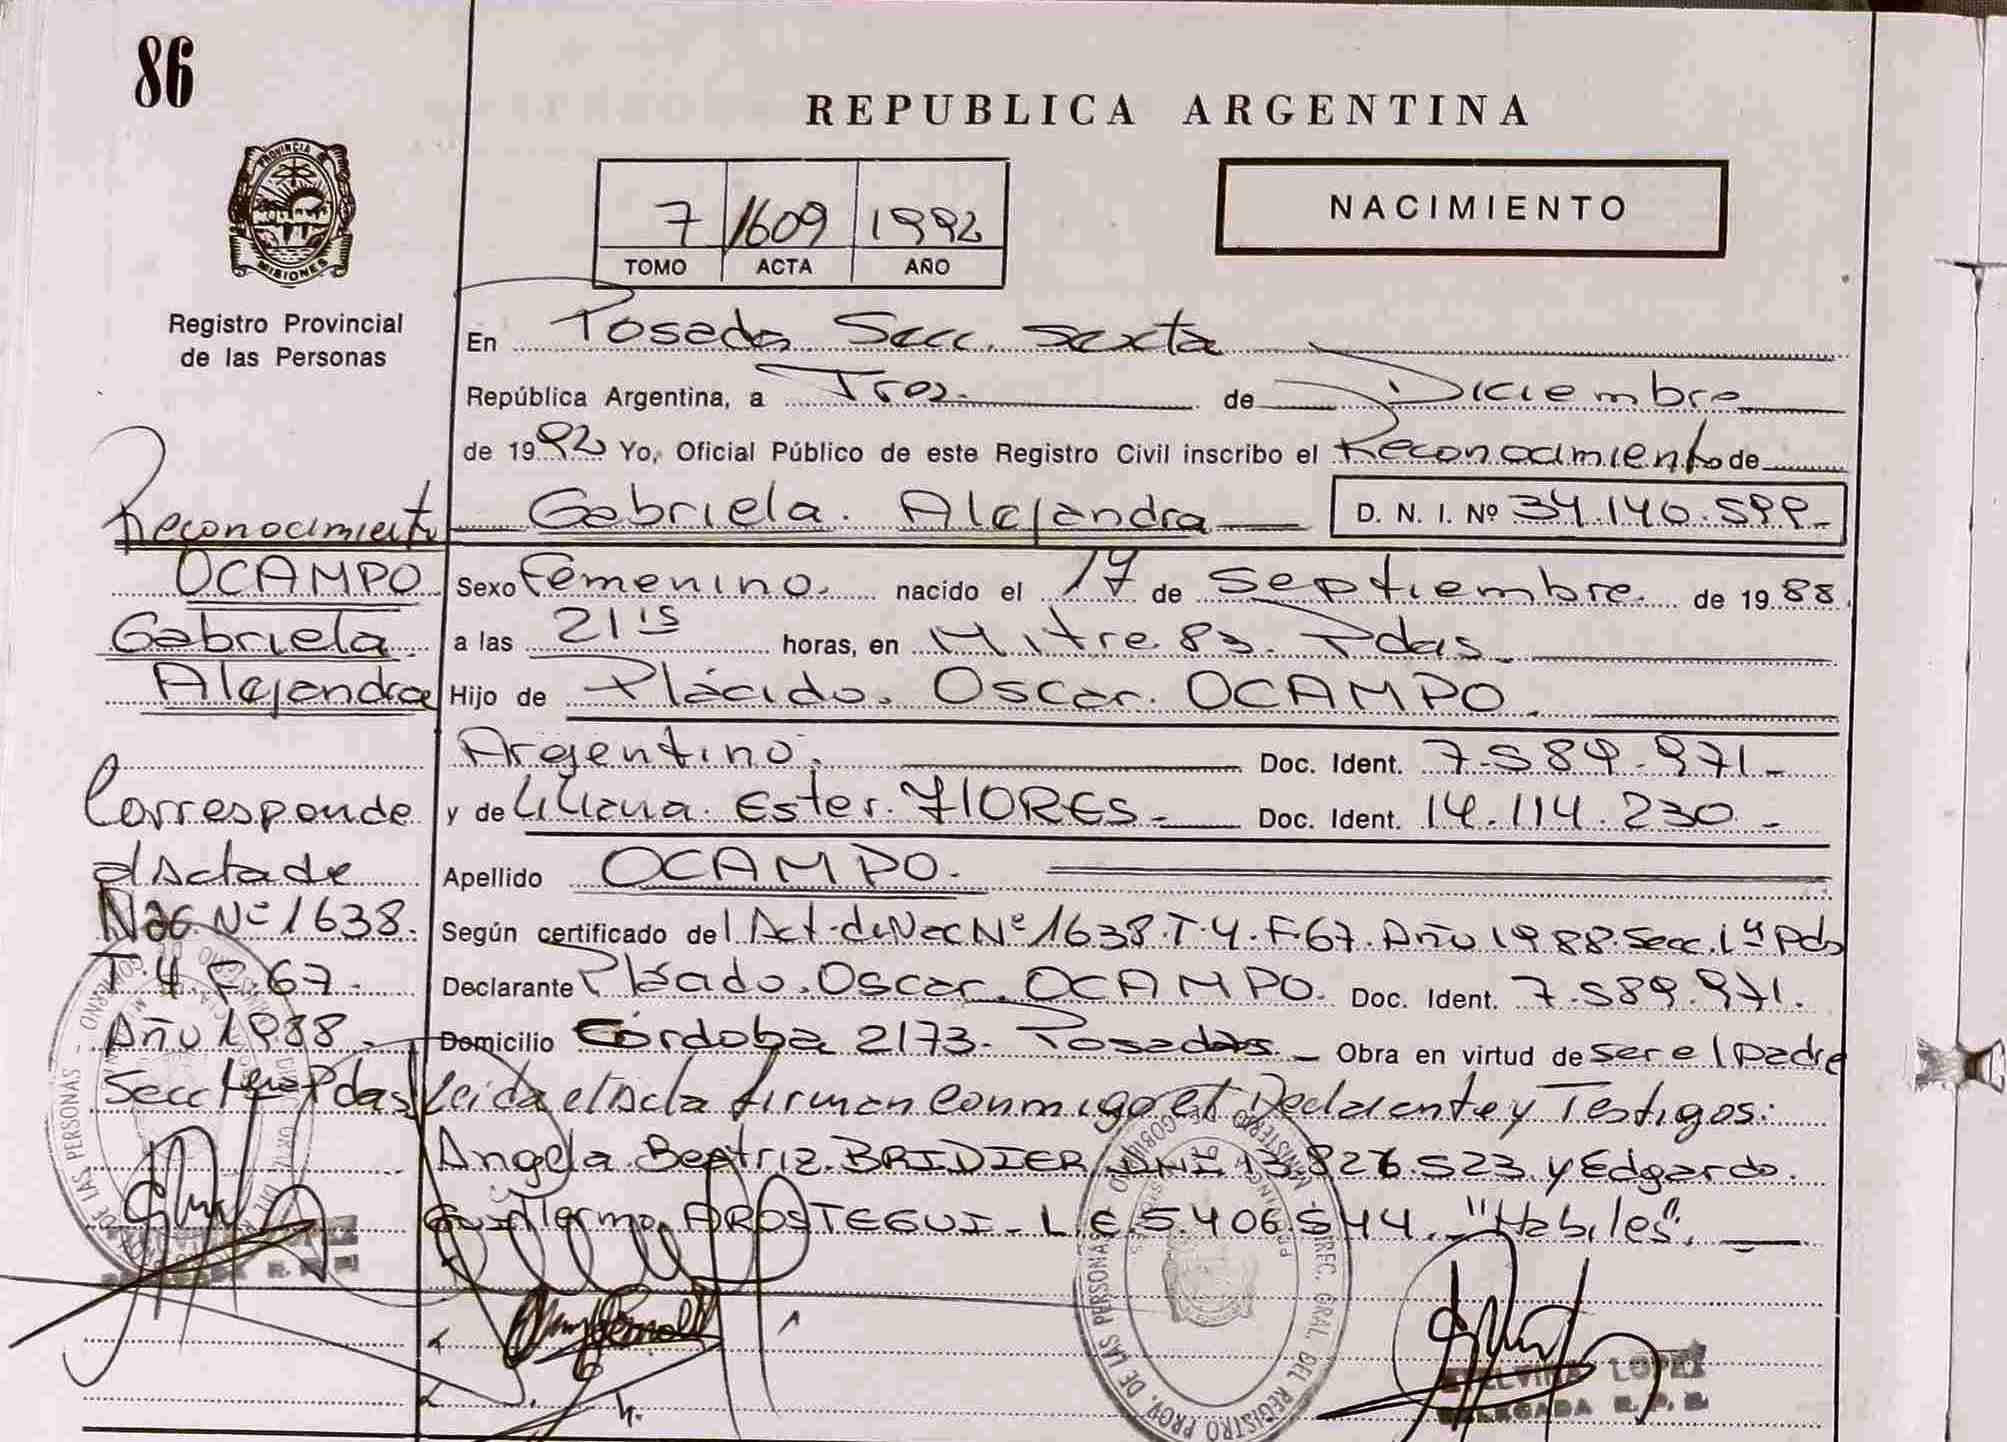 86
REPUBLICA ARGENTINA
PROVINCIA DE
MISIONES
Registro Provincial
de las Personas
7 1609 1992
TOMO ACTA AÑO
NACIMIENTO
En Posadas Secc. Sexta
República Argentina, a Tres. de Diciembre
de 1992 Yo, Oficial Público de este Registro Civil inscribo el Reconocimiento de
Gabriela. Alejandra D. N. I. Nº 34.140.599.
Sexo Femenino. nacido el 17 de Septiembre. de 1988.
a las 21 15 horas, en Mitre 83. Pdas.
Hijo de Plácido. Oscar. OCAMPO.
Argentino. Doc. Ident. 7.589.971.
y de Liliana. Ester. FLORES. Doc. Ident. 14.114.230.
Apellido OCAMPO.
Según certificado del Act. de Nac Nº 1638. T. 4. F. 67. Año 1988. Secc. 1ª Pdas
Declarante Plácido. Oscar. OCAMPO. Doc. Ident. 7.589.971.
Domicilio Córdoba 2173. Posadas. Obra en virtud de ser el padre
Leida el Acta firman conmigo el Declarante y Testigos:
Angela. Beatriz. BRIDIER. DNI 13.826.523. y Edgardo.
Guillermo. AROSTEGUI. L.E. 5.406.544. "Habiles".
Reconocimiento
OCAMPO
Gabriela.
Alejandra
Corresponde
al Acta de
Nac. Nº 1638.
T. 4 F. 67.
Año 1988.
Secc 1era Pdas
DIREC. GRAL. DEL REGISTRO PROV. DE LAS PERSONAS
LOPEZ
DELEGADA R. P. P.